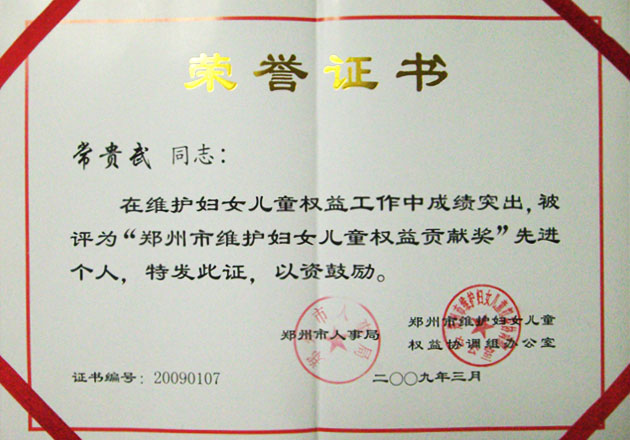 荣誉证书
常贵武 同志：
在维护妇女儿童权益工作中成绩突出，被
评为“郑州市维护妇女儿童权益贡献奖”先进
个人，特发此证，以资鼓励。
郑州市人事局
郑州市维护妇女儿童
权益协调组办公室
证书编号：20090107
二〇〇九年三月